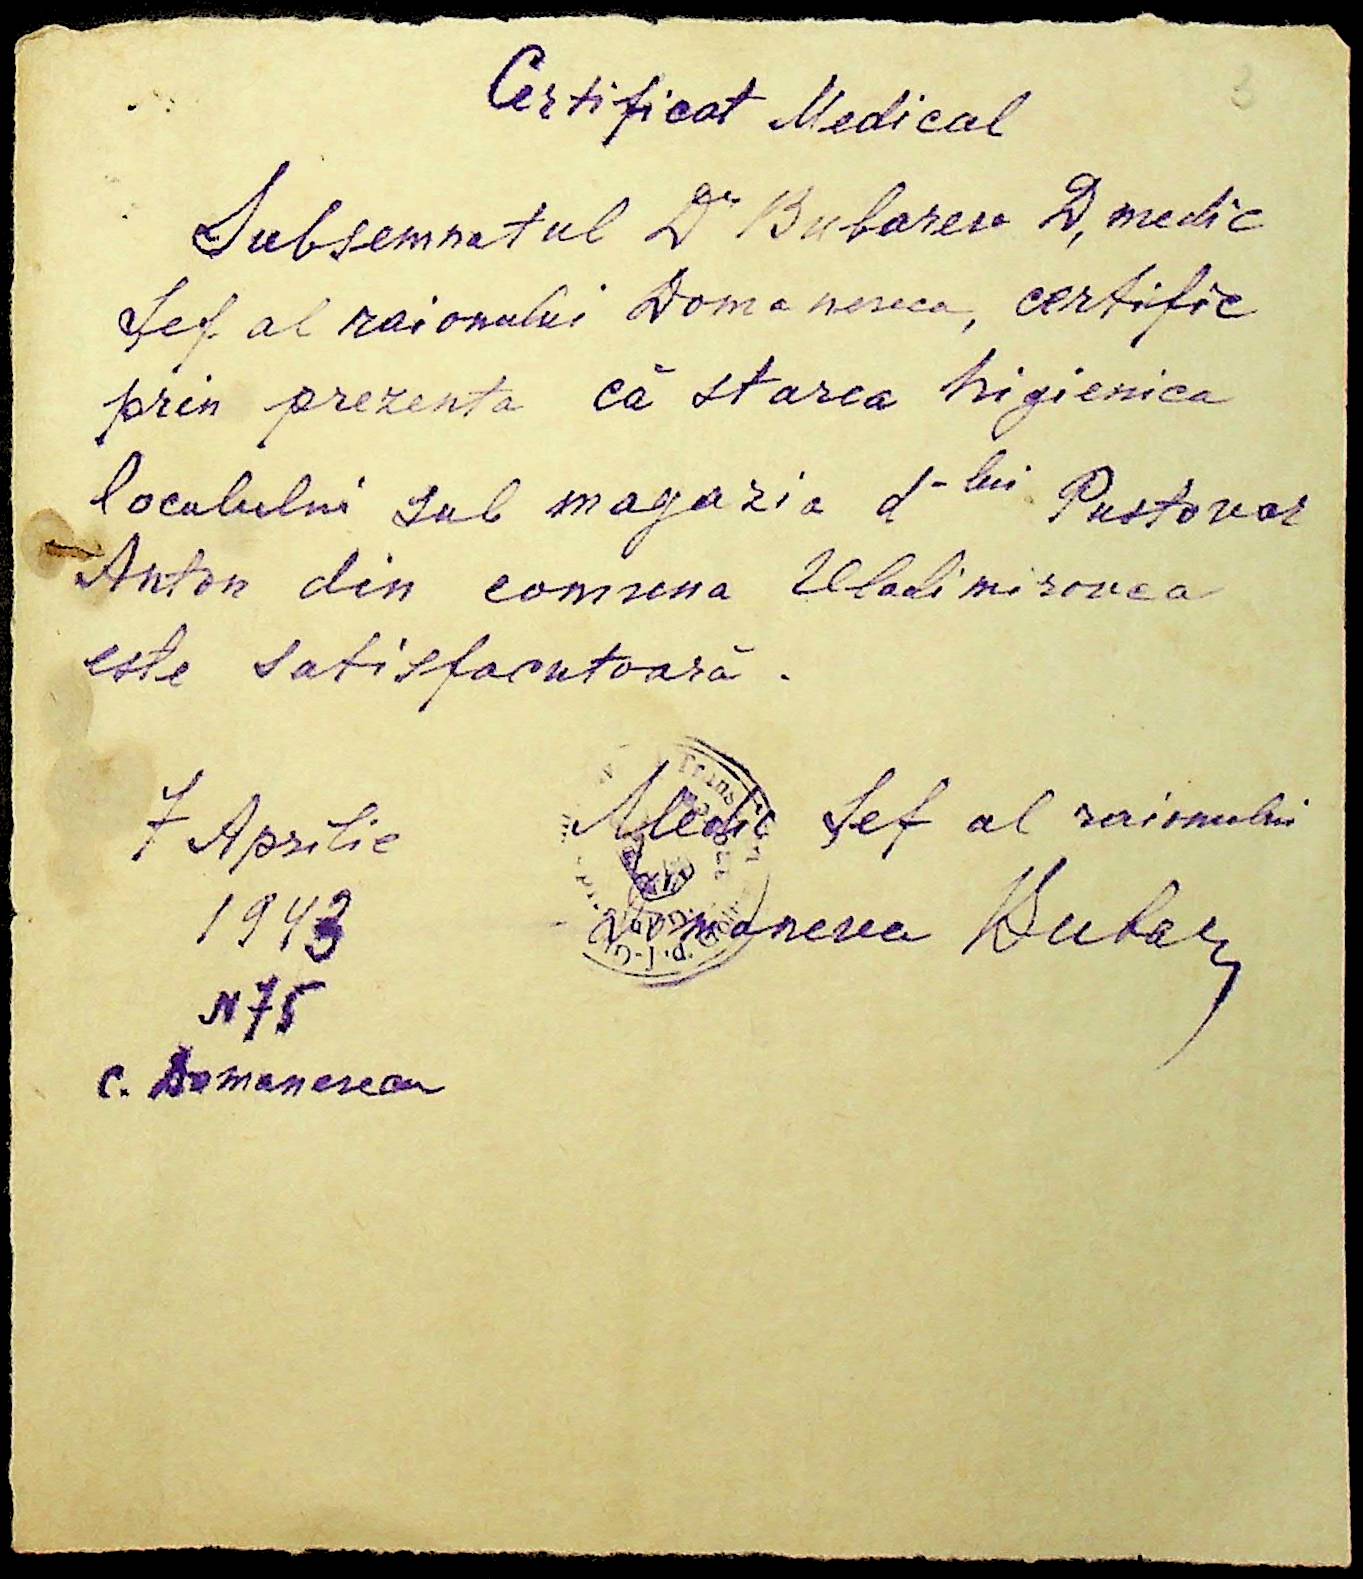 3
Certificat Medical
Subsemnatul Dr Bubarev D, medic
Șef al raionului Domanevca, certific
prin prezenta că starea higienica
localului sub magazia d-lui Pustovar
Anton din comuna Vladimirovca
este satisfacutoară.
7 Aprilie
1943
N 75
c. Domanevca
Medic Șef al raionului
Domanevca
Trans